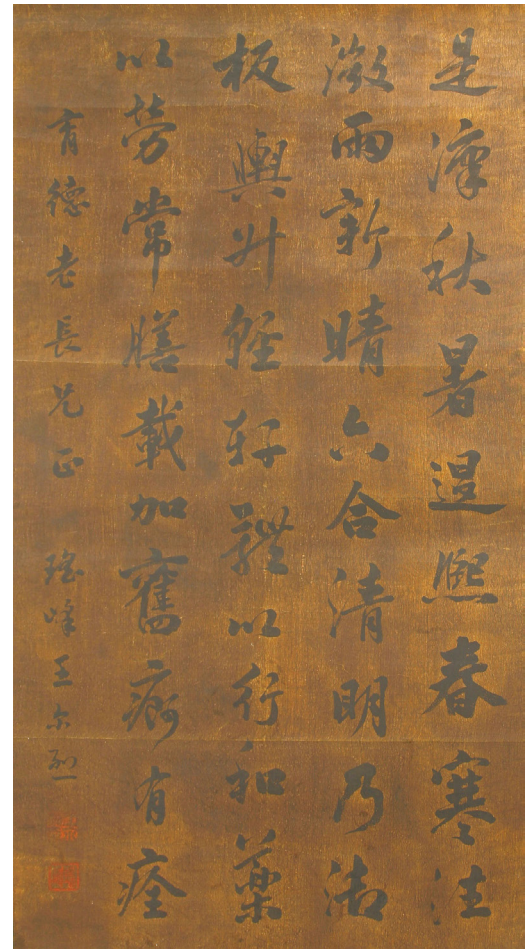 是凛秋暑退熙春寒往
微雨新晴六合清明乃御
板輿升軽軒軆以行和藥
以勞常膳載加舊痾有痊
育德老長兄正 瑤峰王尔烈